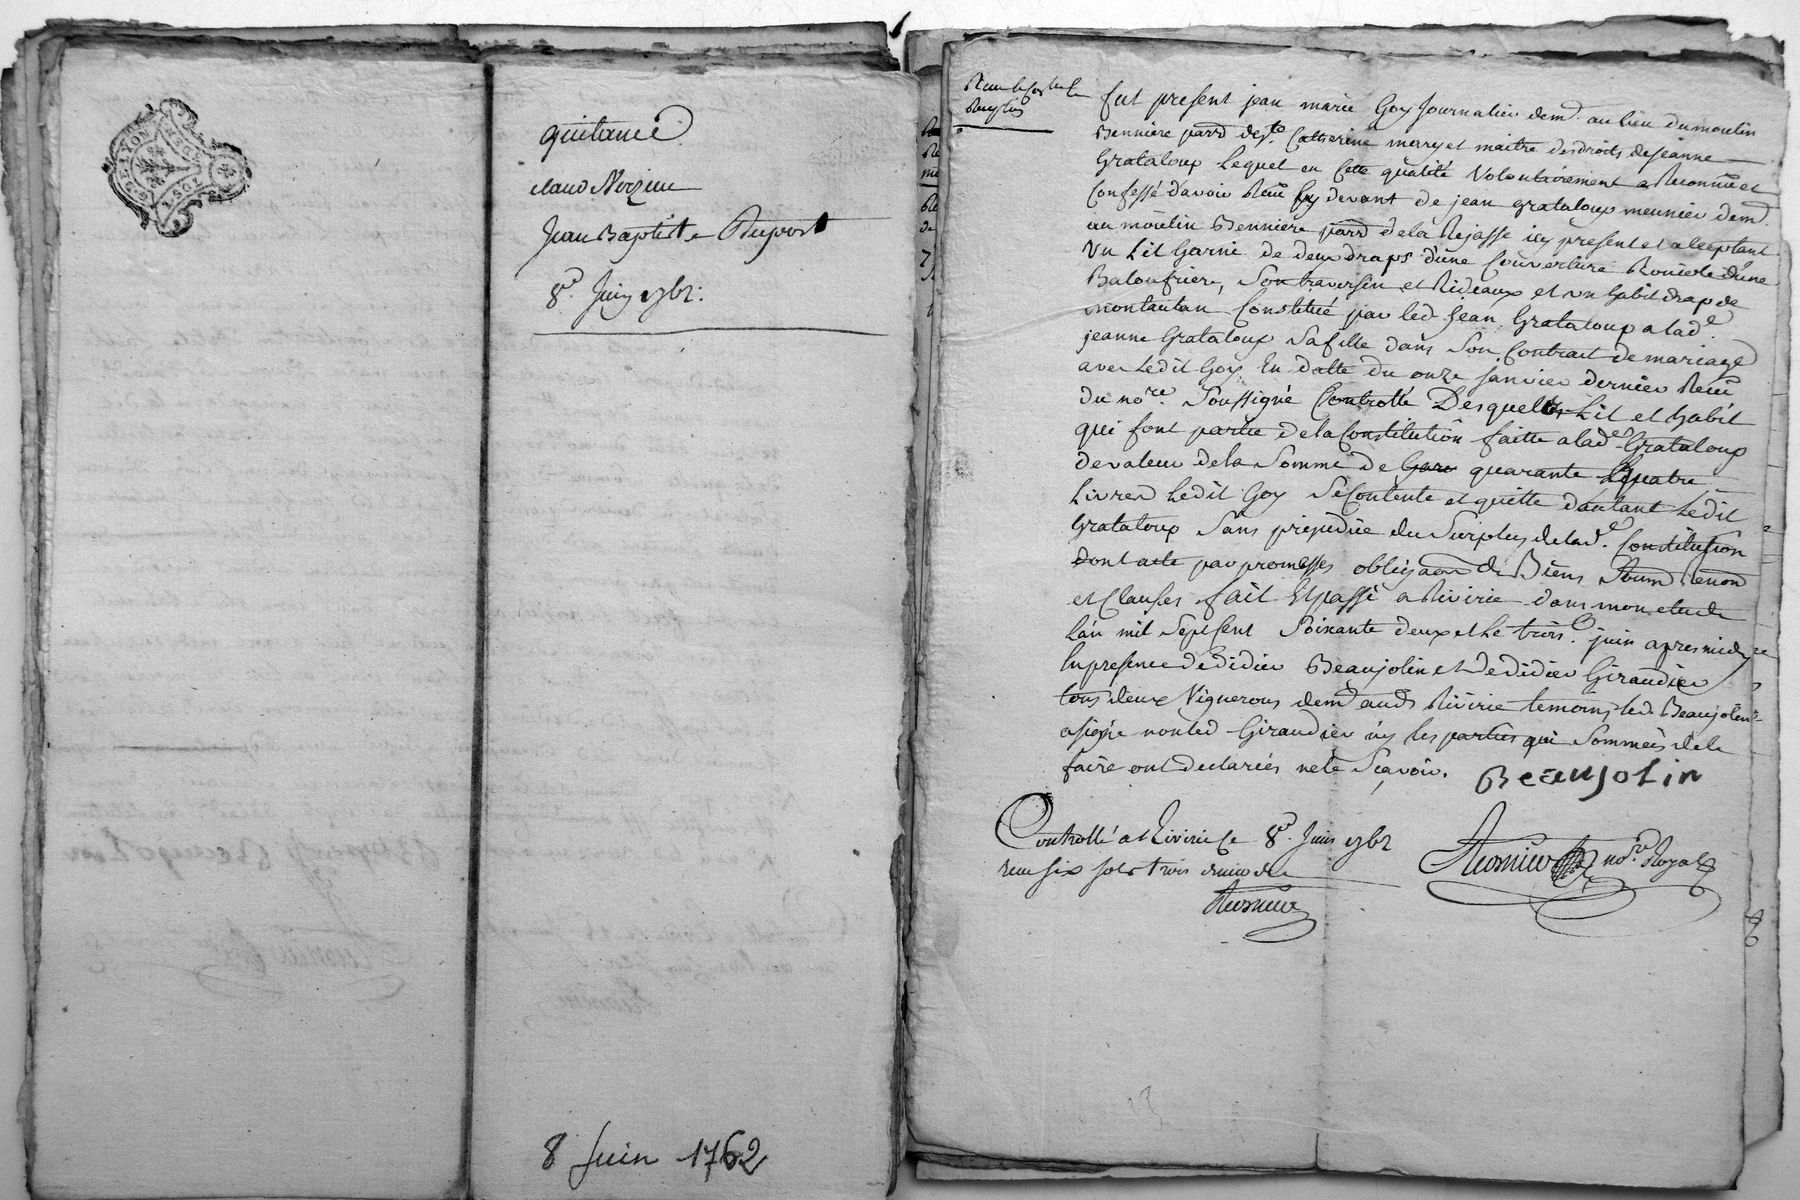 quitance
claud Noizieu
Jean Baptiste Dupont
8e. Juin 1762.
8 Juin 1762
fut present jean marie Goy Journalier demt. au lieu du moulin
Bennière parrd. de ste. Catherine mary et maitre des droits de jeanne
Grataloup Lequel en Cette qualité Volontairement a Reconnu et
Confessé d'avoir Reçu Cy devant de jean grataloup meunier demt.
au moulin Bennière parrd. de la Rejasse icy present et acceptant
Un Lit Garni de deux draps d'une Couverture d'une
Baloufriere, Son traversin et Rideaux et un habit drap de
montauban Constitué par led. jean Grataloup a lade.
jeanne Grataloup Sa fille dans Son Contrat de mariage
avec Ledit Goy En datte du onze janvier dernier Reçu
du nore. Soussigné Controllé Desquels Lit et habit
qui font partie de la Constitution faitte a lade. Grataloup
de valeur de la Somme de quarante quatre
Livres Ledit Goy Se Contente et quitte d'autant Ledit
Grataloup Sans prejudice du Surplus de lade. Constitution
dont acte par promesses obligaon de Biens Soum Renon
et Clauses fait Et passé a Riverie dans mon etude
L'an mil Sept Cent Soixante deux et Le trois. juin apres midy
En presence de didier Beaujolin et de didier Giraudier
tous deux Vignerons demt. aud. Riverie temoins led. Beaujolin
a signé non led. Giraudier ny les parties qui Sommées de le
faire ont declarées ne le Sçavoir. Beaujolin
Controllé a Riverie le 8e. Juin 1762
reçu six sols trois deniers
nore. Royal